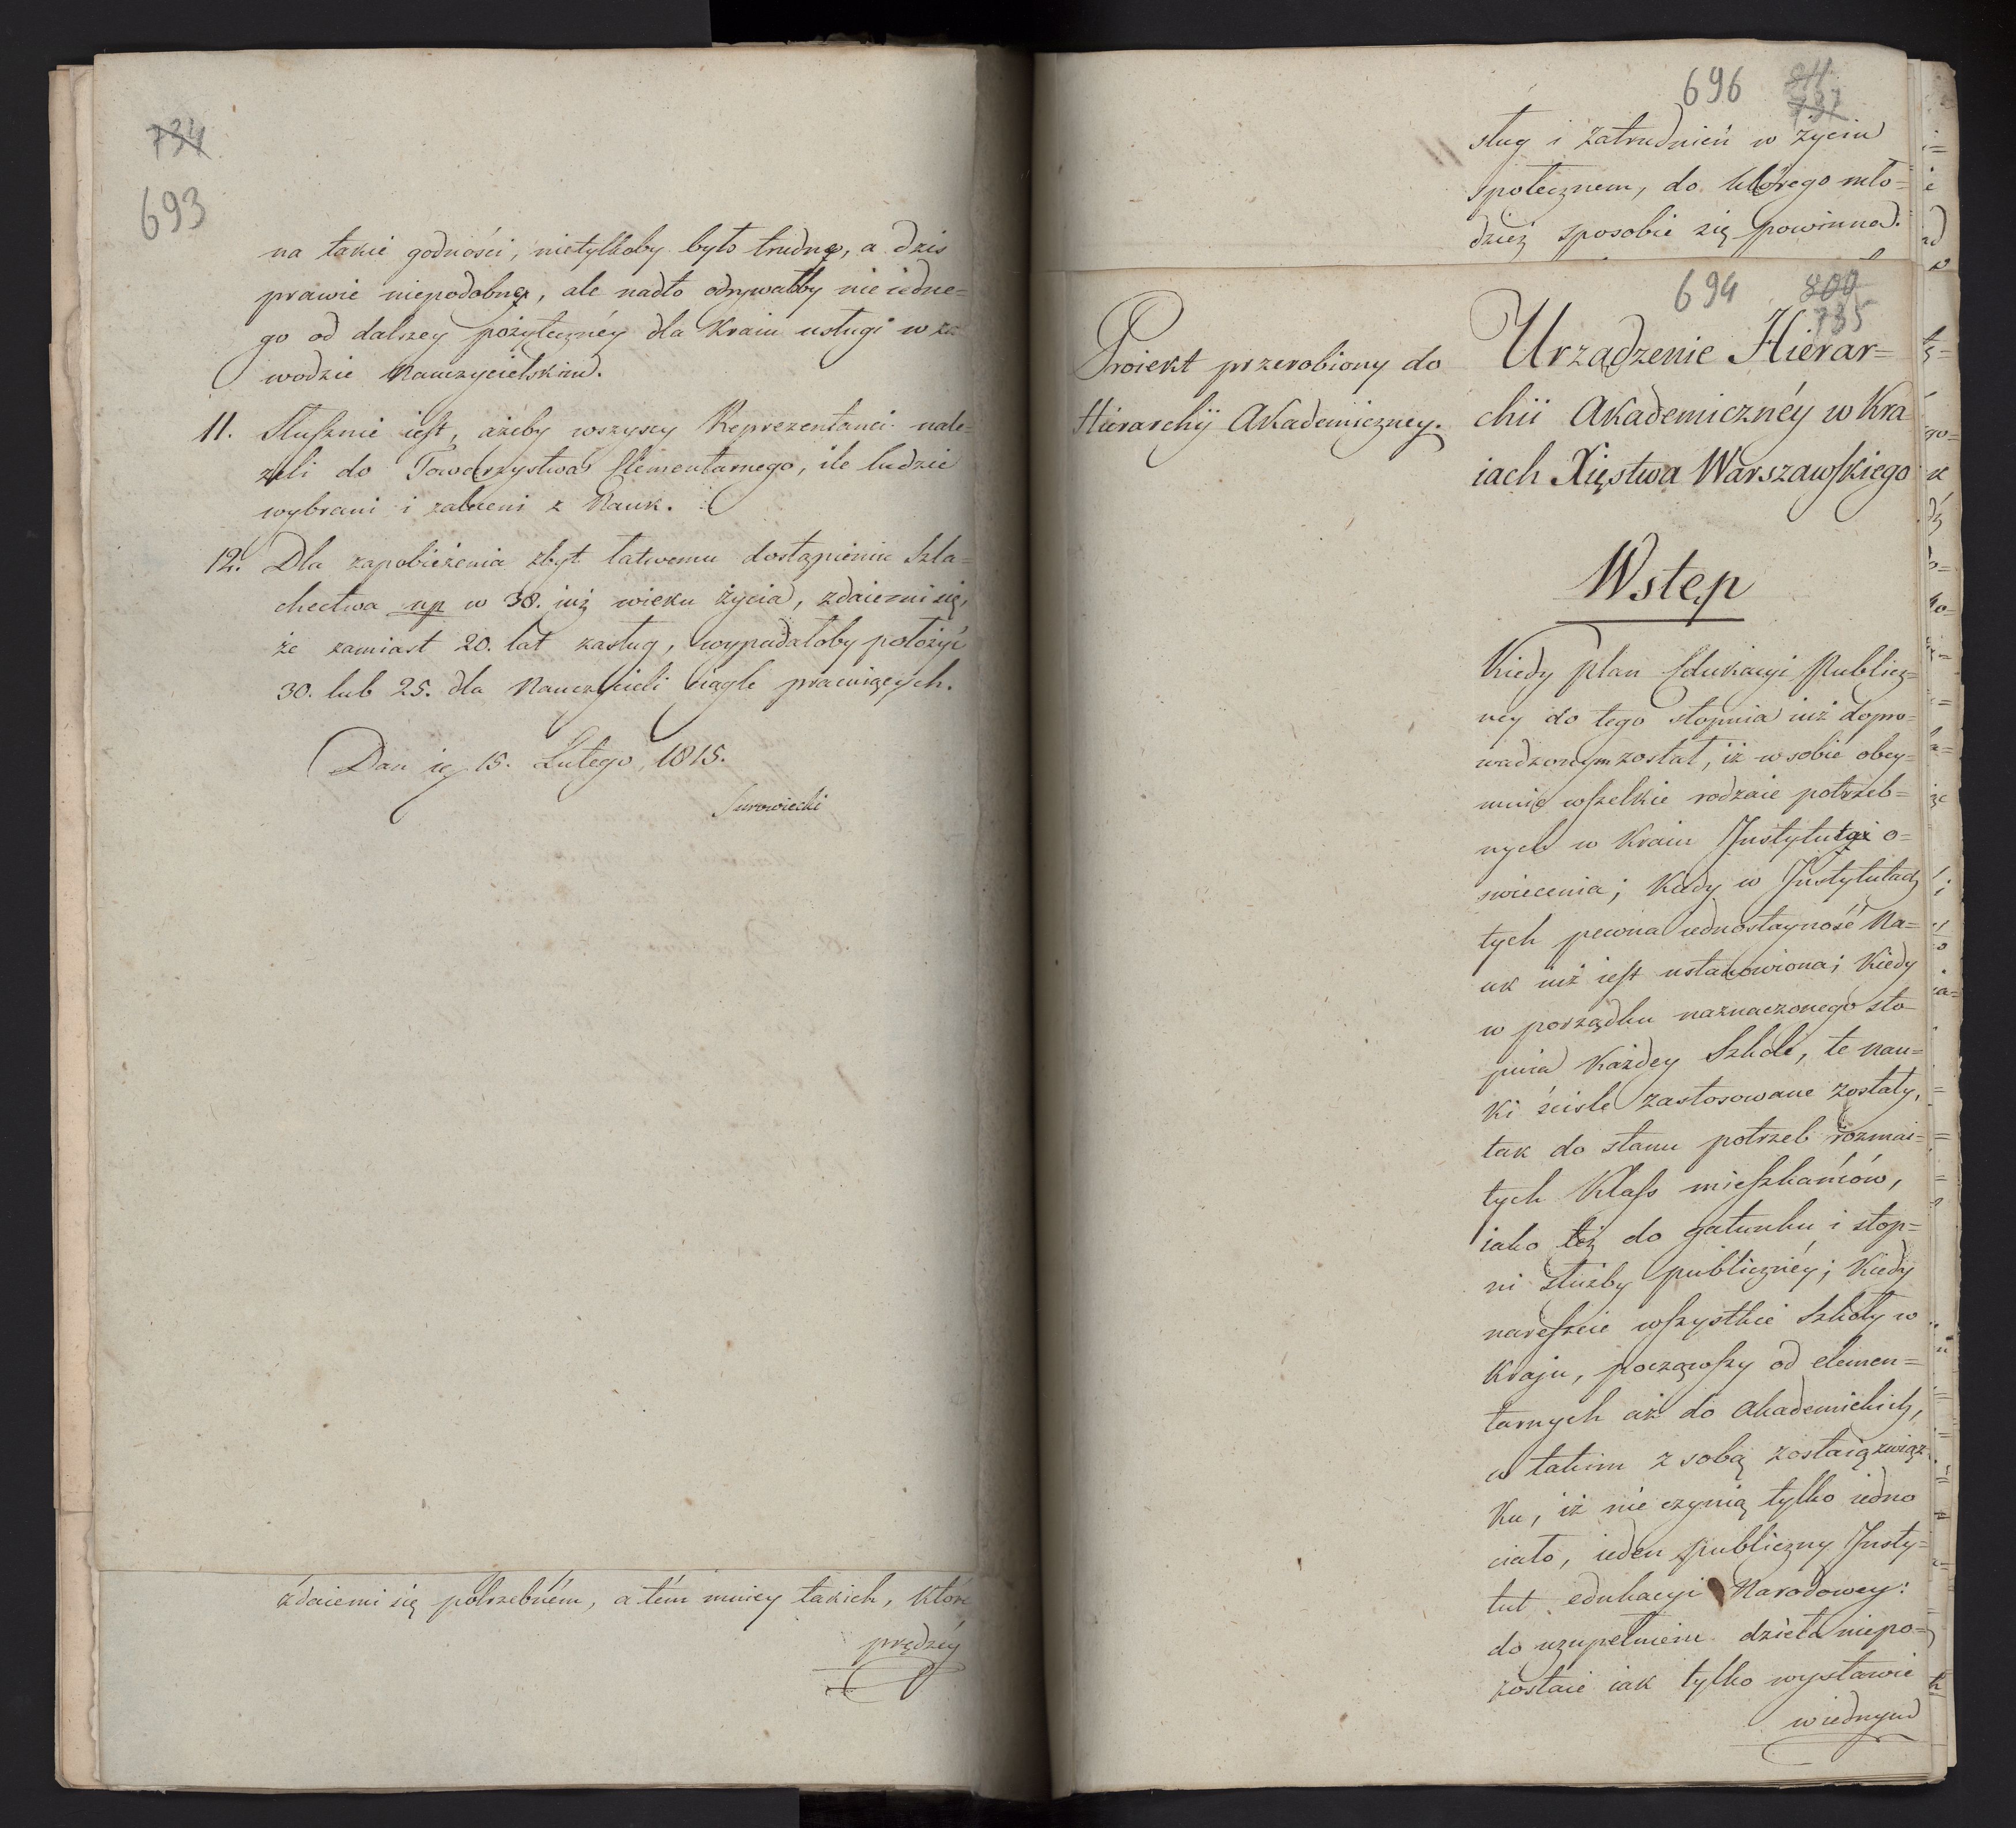 734
693
na takie godności, nietylkoby było trudną, a dzis
prawie niepodobną, ale nadto odrywałby nie iedne=
go od dalszey pożyteczney dla Kraiu usługi w za
wodzie Nauczycielskim.
11. Słusznie iest, ażeby wszyscy Reprezentanci nale=
żeli do Towarzystwa Elementarnego, ile ludzie
wybrani i zaleceni z Nauk.
12. Dla zapobieżenia zbyt łatwemu dostąpieniu Szla=
chectwa np w 38. iuż wieku życia, zdaiemi się,
że zamiast 20. lat zasług, wypadałoby położyć
30. lub 25. dla Nauczycieli ciągle pracuiących.
Dan ie 15. Lutego, 1815.
Surowiecki
zdaiemi się potrzebném, a tém mniey takich, które
prędzéy
696 811
737
sług i zatrudnień w życiu
społecznem, do którego mło=
dzież sposobić się powinna.
694 809
735
Proiekt przerobiony do
Hierarchij Akademiczney.
Urządzenie Hierar=
chii Akademicznéy w Kra
iach Xięstwa Warszawskiego
Wstęp
Kiedy plan Edukacyi Publicz=
ney do tego stopnia iuż dopro=
wadzonym został, iż w sobie obey=
muie wszelkie rodzaie potrzeb=
nych w Kraiu Instytutów o=
swiecenia; Kiedy w Instytutach
tych pewna iednostayność Na=
uk iuż iest ustanowiona; Kiedy
w porządku naznaczonego sto=
pnia Każdey Szkole, te nau=
ki ściśle zastosowane zostały,
tak do stanu potrzeb rozmai=
tych Klass mieszkańców,
iako też do gatunku i stop=
ni służby publicznéy; Kiedy
nareszcie wszystkie Szkoły w
Kraju, począwszy od elemen=
tarnych aż do Akademickich,
w takim z sobą zostaią związ
ku, iż nie czynią tylko iedno
ciało, ieden publiczny Insty=
tut edukacyi Narodowey:
do uzupełnieniu dzieła niepo=
zostaie iak tylko wystawić
w iednym